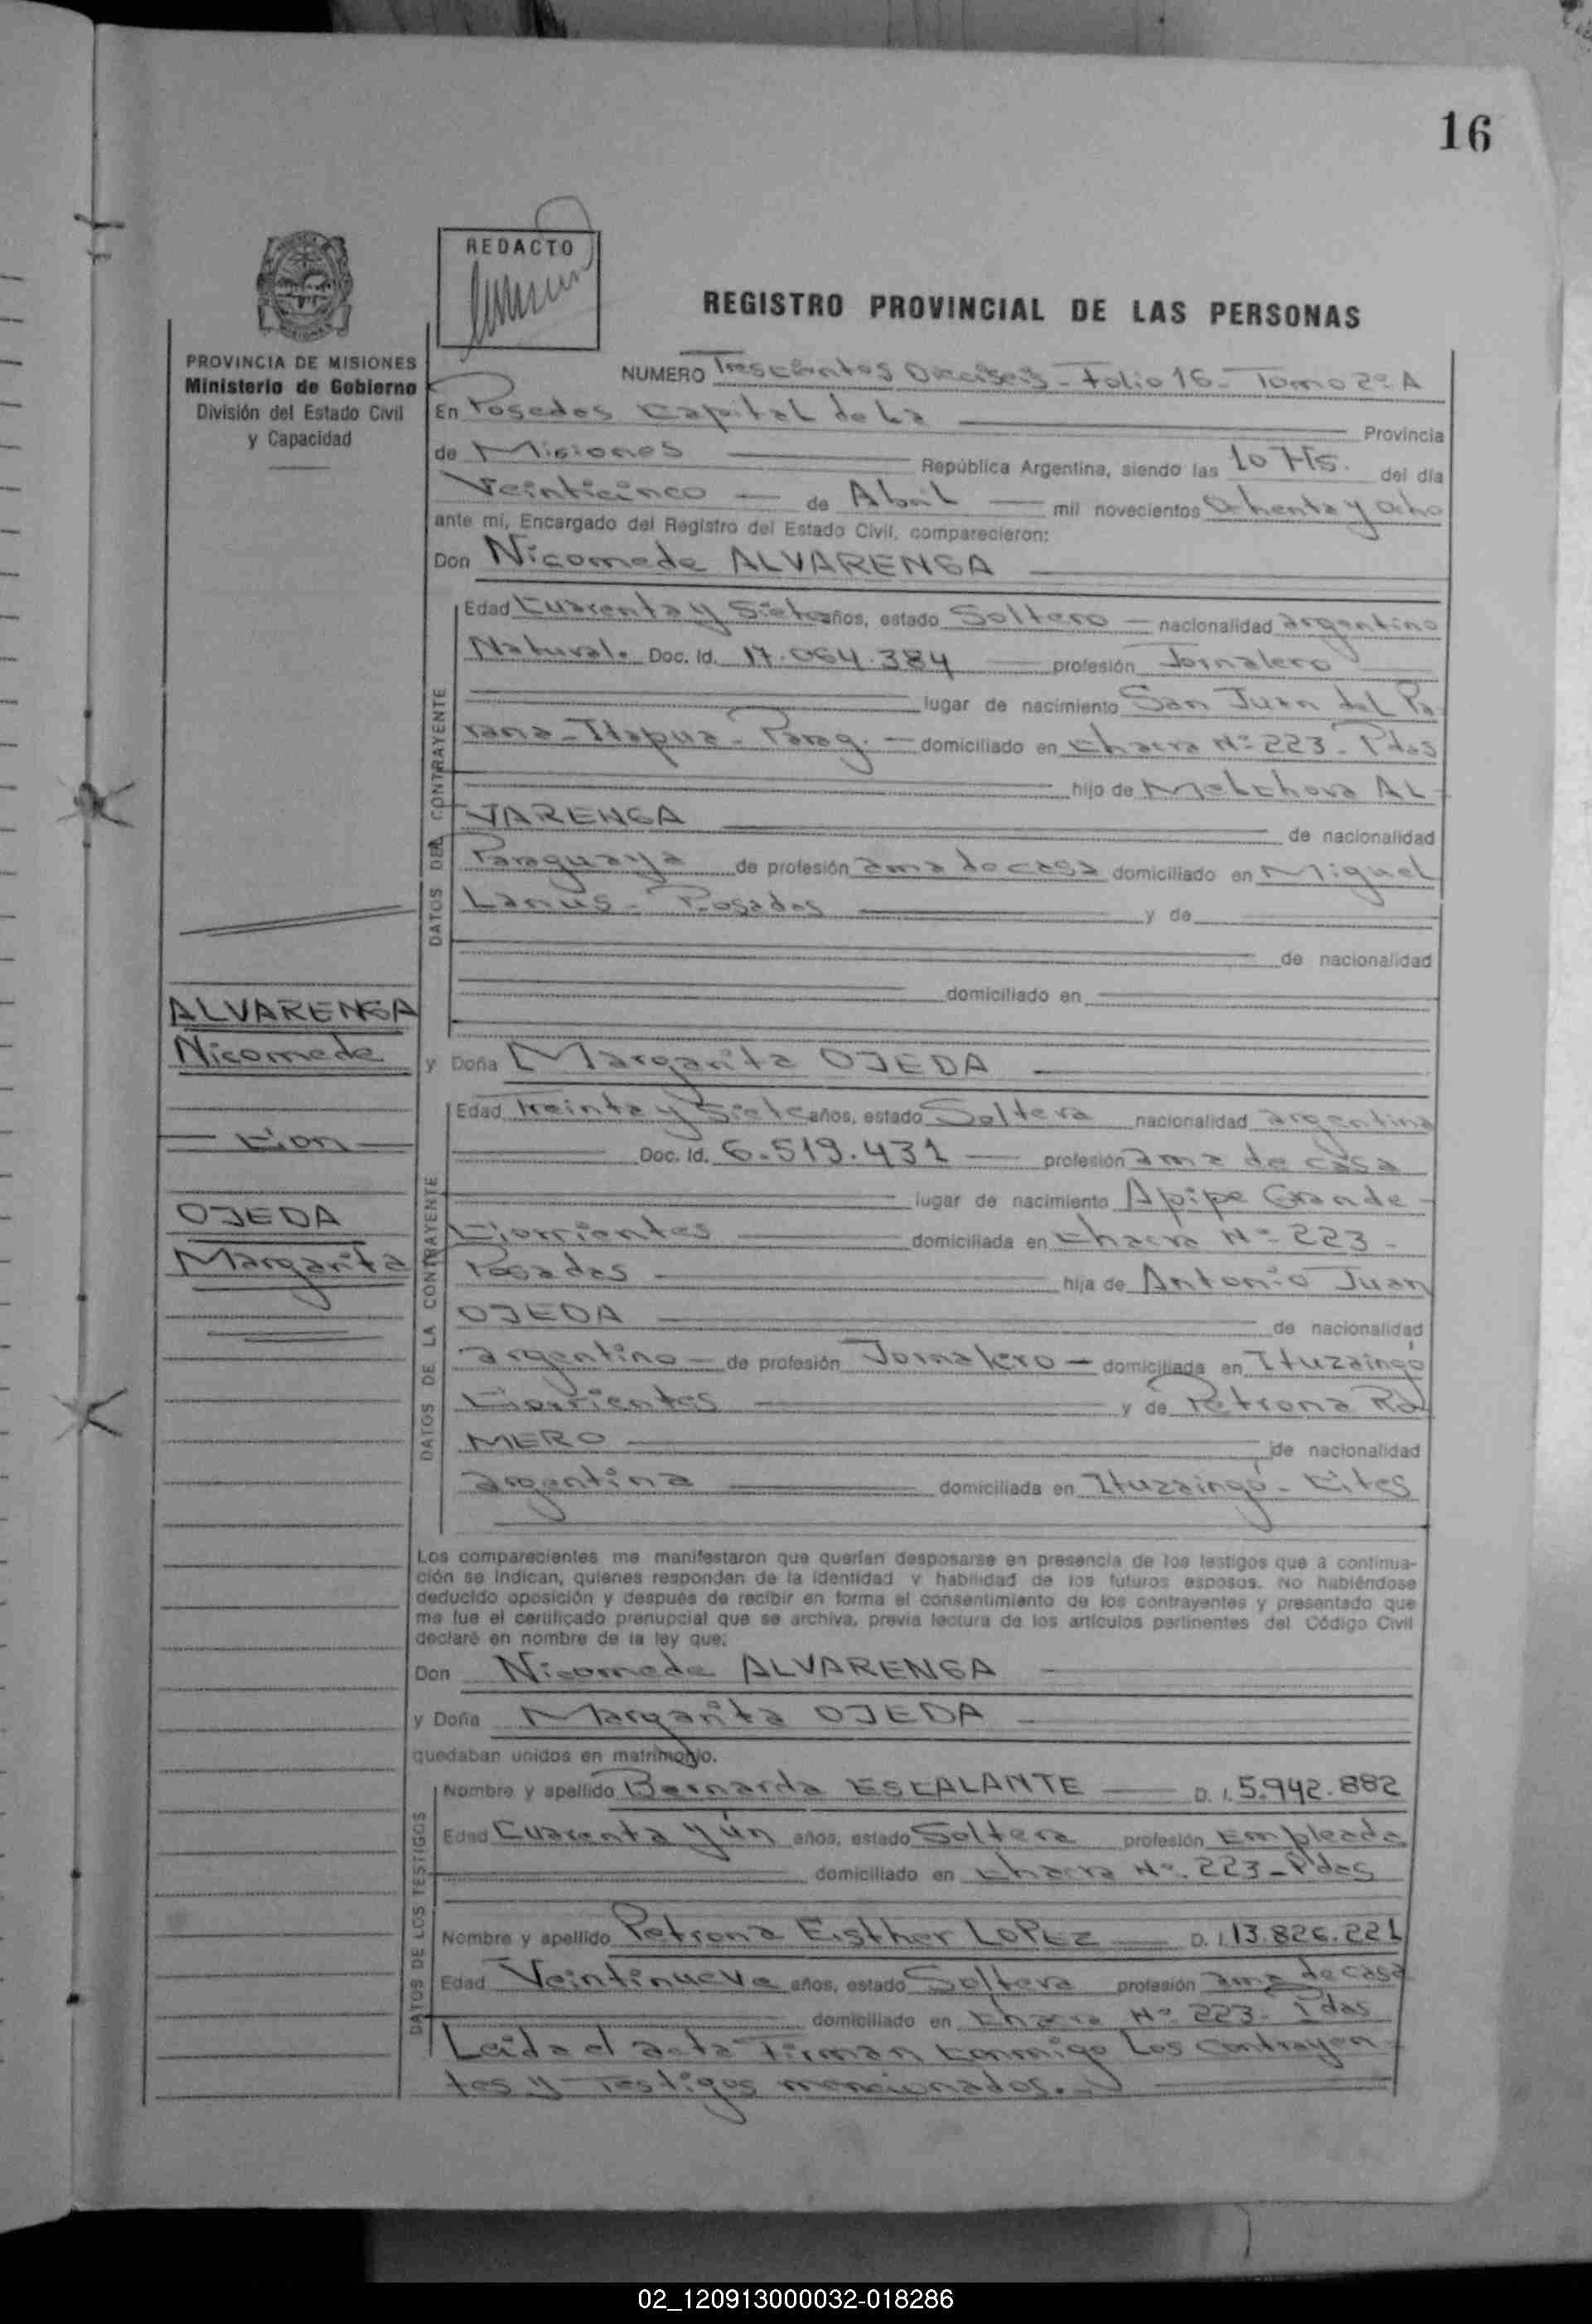 16
REDACTO
REGISTRO PROVINCIAL DE LAS PERSONAS
PROVINCIA DE MISIONES
Ministerio de Gobierno
División del Estado Civil
y Capacidad
NUMERO Trescientos Dieciseis - Folio 16 - Tomo 2º A
En Posadas Capital de La Provincia
de Misiones República Argentina, siendo las 10 Hs. del día
Veinticinco de Abril mil novecientos Ochenta y ocho
ante mí, Encargado del Registro del Estado Civil, comparecieron:
Don Nicomede ALVARENGA
DATOS DEL CONTRAYENTE
Edad Cuarenta y Siete años, estado Soltero nacionalidad argentino
Natural. Doc. Id. 17.064.384 profesión Jornalero
lugar de nacimiento San Juan del Pa
rana - Itapua - Parag. domiciliado en Chacra Nº 223 - Pdas
hijo de Melchora AL-
VARENGA de nacionalidad
Paraguaya de profesión ama de casa domiciliado en Miguel
Lanus - Posadas y de
de nacionalidad
domiciliado en
ALVARENGA
Nicomede
con
OJEDA
Margarita
y Doña Margarita OJEDA
DATOS DE LA CONTRAYENTE
Edad Treinta y Siete años, estado Soltera nacionalidad argentina
Doc. Id. 6.519.431 profesión ama de casa
lugar de nacimiento Apipe Grande -
Corrientes domiciliada en Chacra Nº 223 -
Posadas hija de Antonio Juan
OJEDA de nacionalidad
argentino - de profesión Jornalero - domiciliada en Ituzaingó
Corrientes y de Petrona RO
MERO de nacionalidad
argentina domiciliada en Ituzaingó - Ctes
Los comparecientes me manifestaron que querían desposarse en presencia de los testigos que a continua-
ción se indican, quienes responden de la identidad y habilidad de los futuros esposos. No habiéndose
deducido oposición y después de recibir en forma el consentimiento de los contrayentes y presentado que
me fue el certificado prenupcial que se archiva, previa lectura de los artículos pertinentes del Código Civil
declaré en nombre de la ley que:
Don Nicomede ALVARENGA
y Doña Margarita OJEDA
quedaban unidos en matrimonio.
DATOS DE LOS TESTIGOS
Nombre y apellido Bernarda ESCALANTE D. I. 5.942.882
Edad Cuarenta y ún años, estado Soltera profesión Empleada
domiciliado en Chacra Nº 223 - Pdas
Nombre y apellido Petrona Esther LOPEZ D. I. 13.826.221
Edad Veintinueve años, estado Soltera profesión ama de casa
domiciliado en Chacra Nº 223 - Pdas
Leida el acta Firman conmigo Los contrayen-
tes y Testigos mencionados.
02_120913000032-018286